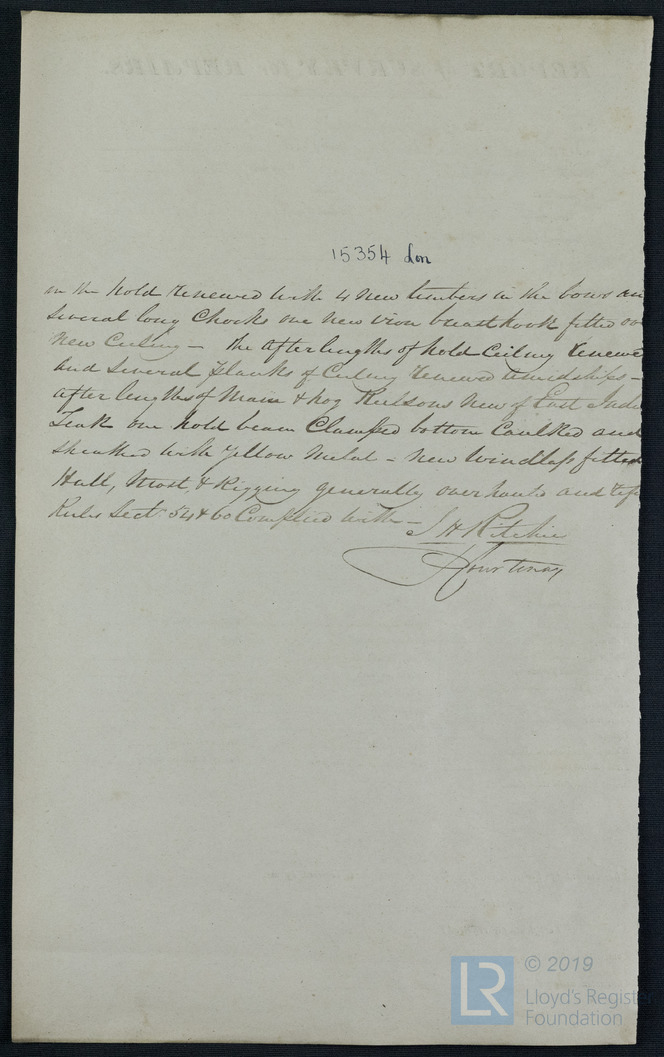 REPORT of SURVEY for REPAIRS.
15354 Lon
in the hold renewed with 4 new timbers in the bows an
several long Chocks one new iron breasthook fitted ov
New Ceiling - the after lengths of hold Ceiling renewe
and several planks of Ceiling renewed amidships -
after lengths of Main & hog Keelsons new of East Indi
Teak one hold beam Clamped bottom Caulked and
sheathed with Yellow Metal - New Windlass fitted
Hull, Mast, & Rigging generally overhauled and
Rules Sect. 54 & 60 Complied with -
J H Ritchie
Courtenay
© 2019
LR
Lloyd's Register
Foundation